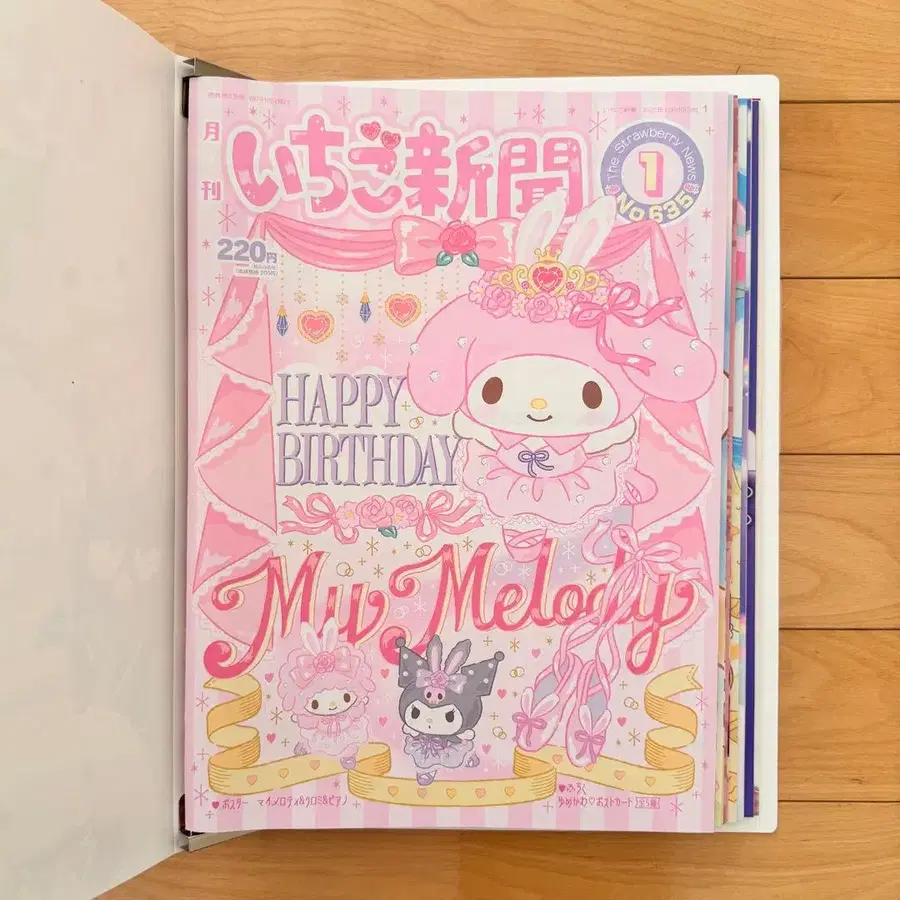 月刊
いちご新聞
The Strawberry News
1
No.635
220円
HAPPY
BIRTHDAY
My Melody
♥ポスター マイメロディ&クロミ&ピアノ
♥ふろく
ゆめかわ♡ポストカード[全5種]